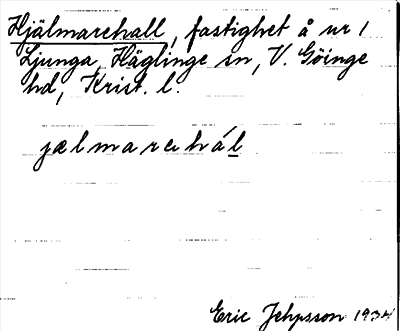 Hjälmarehall, fastighet å nr 1
Ljunga, Häglinge sn, V. Göinge
hd, Krist. l.
jælmarahál
Eric Jepsson 1934